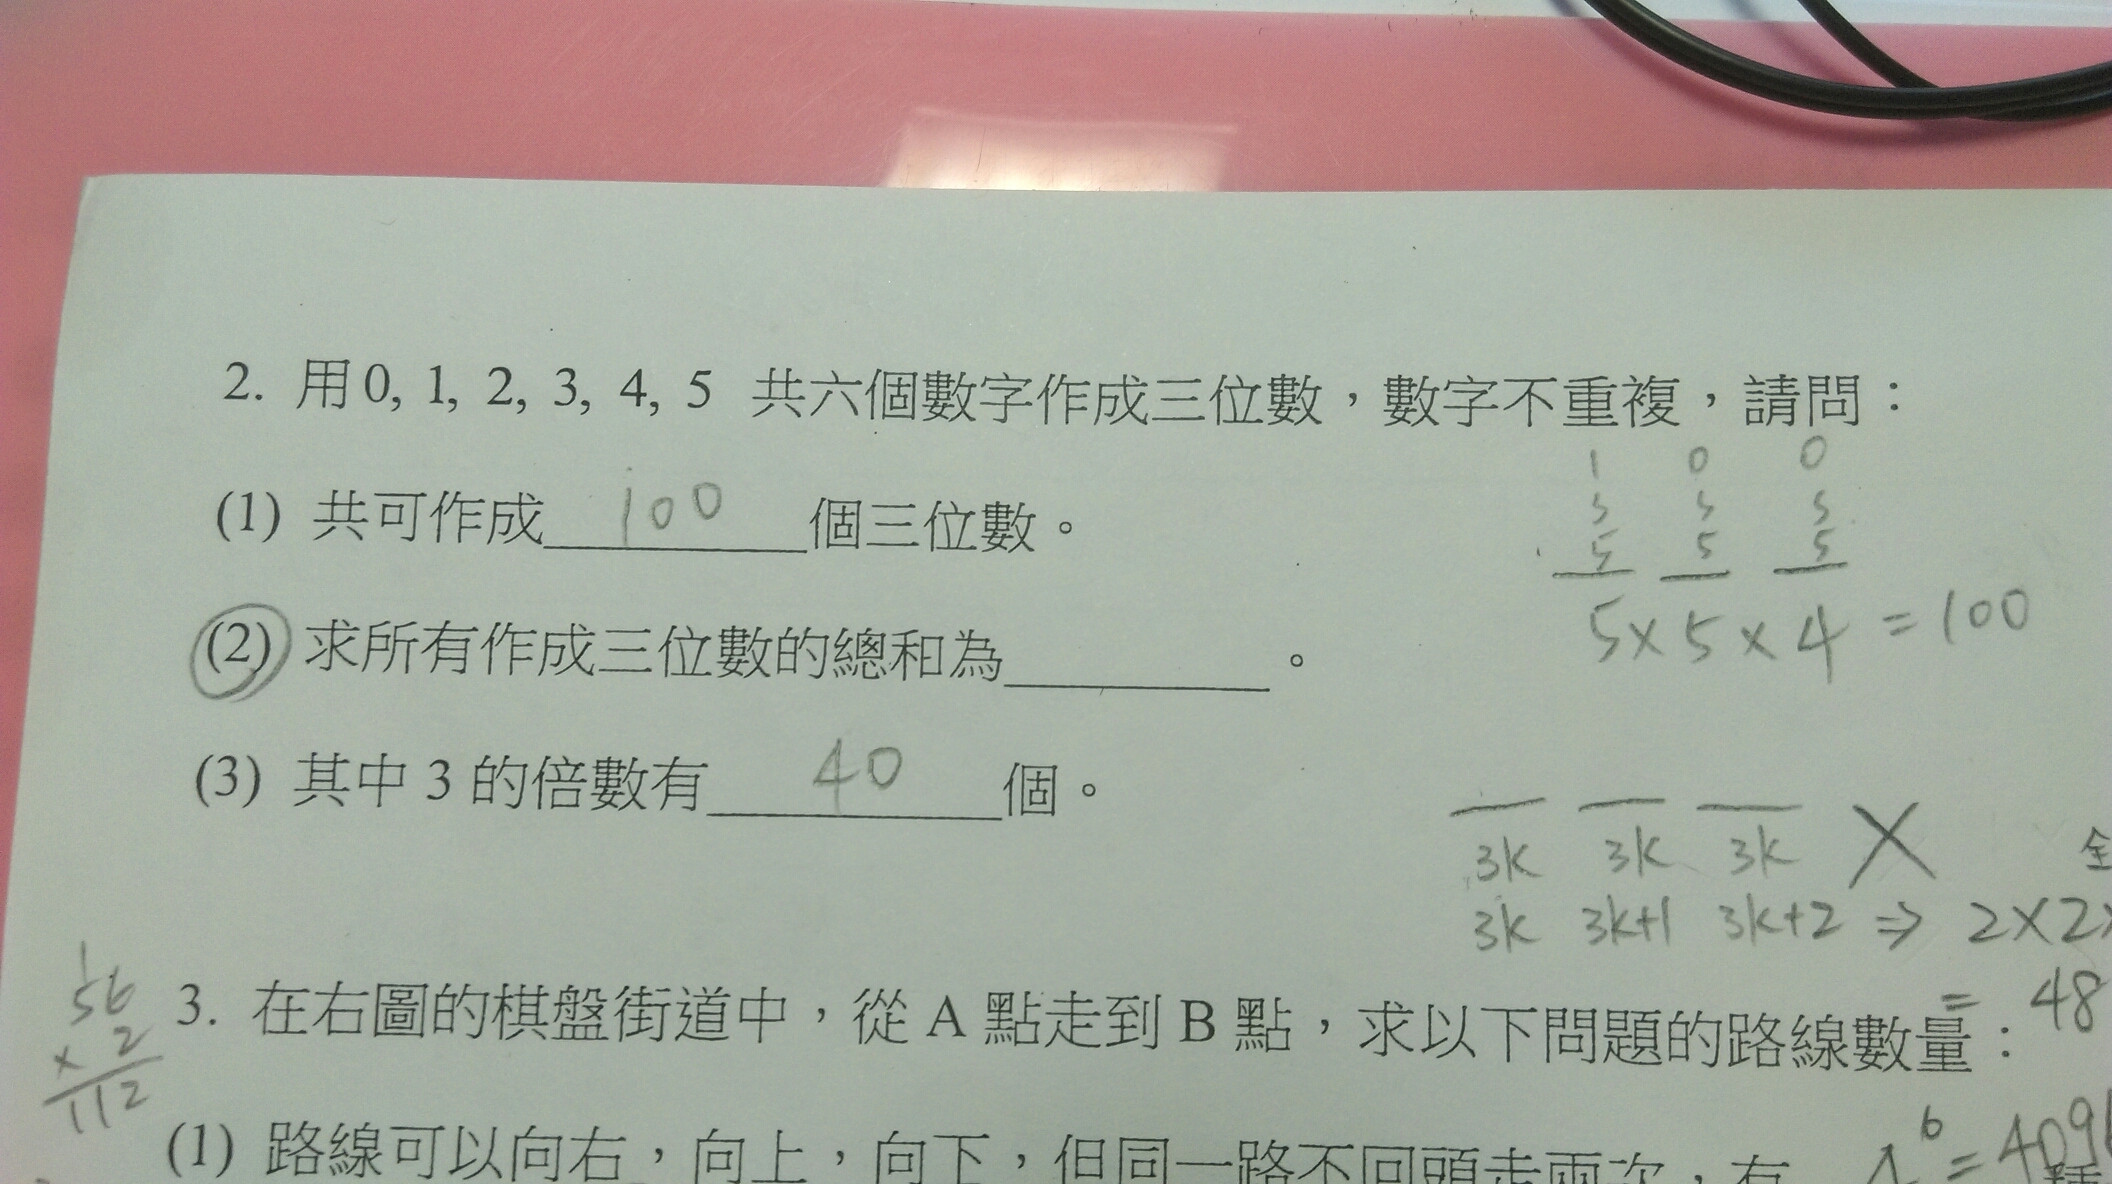 2. 用 0, 1, 2, 3, 4, 5 共六個數字作成三位數，數字不重複，請問：
1 0 0
(1) 共可作成 100 個三位數。
5 5 5
5 5 5
5×5×4=100
(2) 求所有作成三位數的總和為 。
(3) 其中 3 的倍數有 40 個。
3k 3k 3k ×
全
3k 3k+1 3k+2 ⇒ 2×2×
= 48
1
56
×2
112
3. 在右圖的棋盤街道中，從 A 點走到 B 點，求以下問題的路線數量：
(1) 路線可以向右，向上，向下，但同一路不回頭走兩次，有
6
= 4096
種